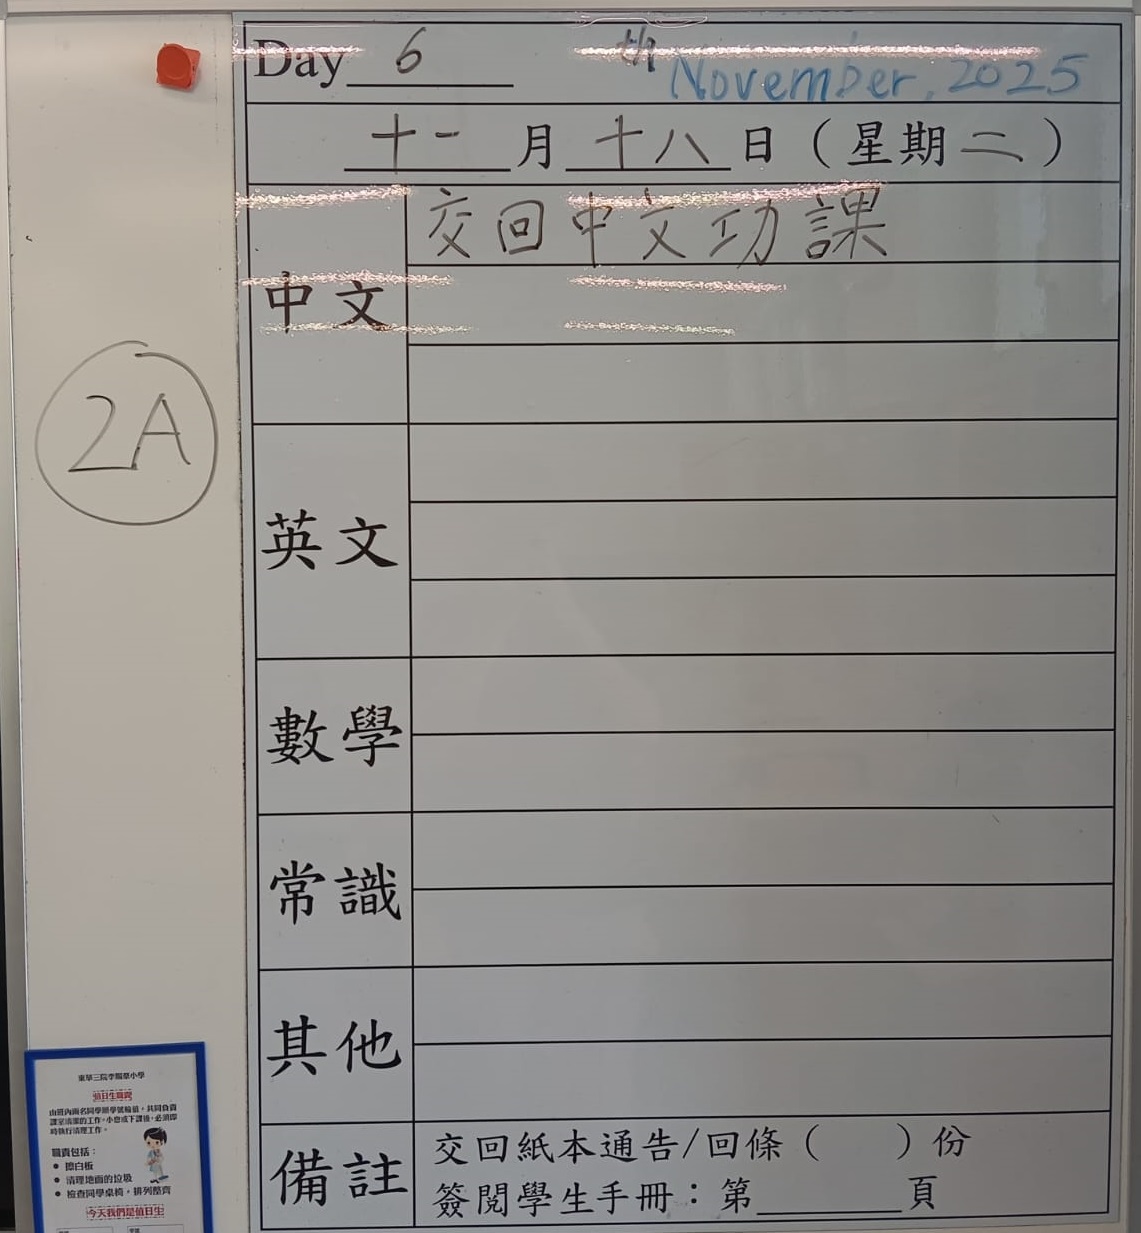 Day 6 th November, 2025
十一月十八日（星期二）
交回中文功課
中文
2A
英文
數學
常識
其他
備註
交回紙本通告/回條（ ）份
簽閱學生手冊：第______頁
東華三院李賜豪小學
值日生職責
由班內兩名同學順學號輪值，共同負責
課室清潔的工作。小息或下課後，必須即
時執行清理工作。
職責包括：
• 擦白板
• 清理地面的垃圾
• 檢查同學桌椅，排列整齊
今天我們是值日生